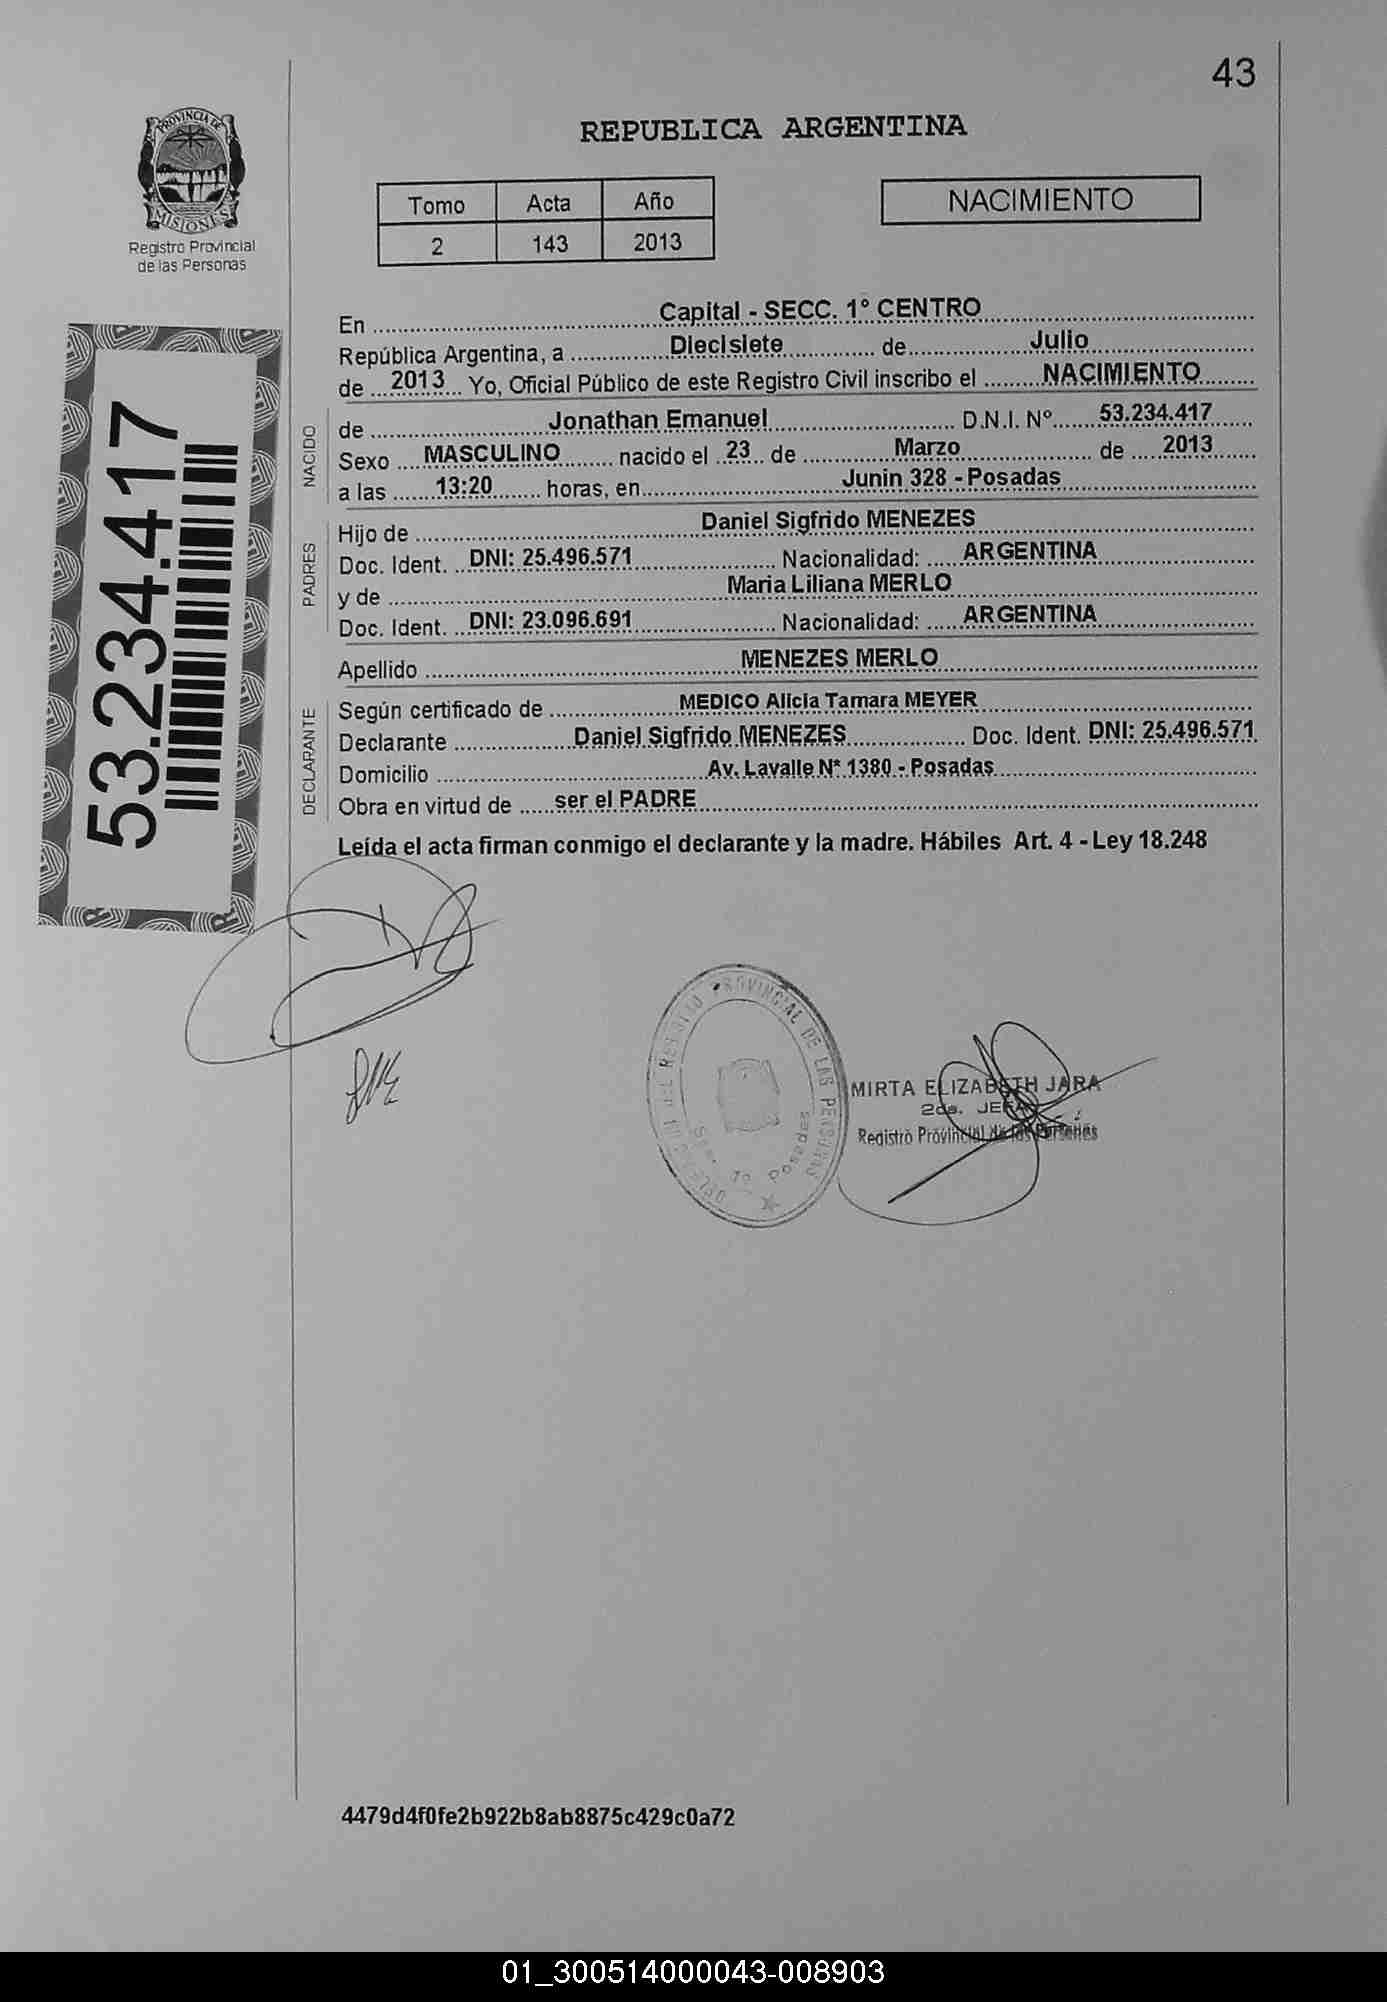 43
PROVINCIA DE
MISIONES
Registro Provincial
de las Personas
REPUBLICA ARGENTINA
Tomo Acta Año
2 143 2013
NACIMIENTO
53.234.417
En Capital - SECC. 1° CENTRO
República Argentina, a Diecisiete de Julio
de 2013 Yo, Oficial Público de este Registro Civil inscribo el NACIMIENTO
NACIDO
de Jonathan Emanuel D.N.I. N° 53.234.417
Sexo MASCULINO nacido el 23 de Marzo de 2013
a las 13:20 horas, en Junin 328 - Posadas
PADRES
Hijo de Daniel Sigfrido MENEZES
Doc. Ident. DNI: 25.496.571 Nacionalidad: ARGENTINA
y de Maria Liliana MERLO
Doc. Ident. DNI: 23.096.691 Nacionalidad: ARGENTINA
Apellido MENEZES MERLO
DECLARANTE
Según certificado de MEDICO Alicia Tamara MEYER
Declarante Daniel Sigfrido MENEZES Doc. Ident. DNI: 25.496.571
Domicilio Av. Lavalle N* 1380 - Posadas
Obra en virtud de ser el PADRE
Leída el acta firman conmigo el declarante y la madre. Hábiles Art. 4 - Ley 18.248
PROVINCIAL DE LAS PERSONAS
Posadas
MIRTA ELIZABETH JARA
2da. JEFA
Registro Provincial de las Personas
4479d4f0fe2b922b8ab8875c429c0a72
01_300514000043-008903